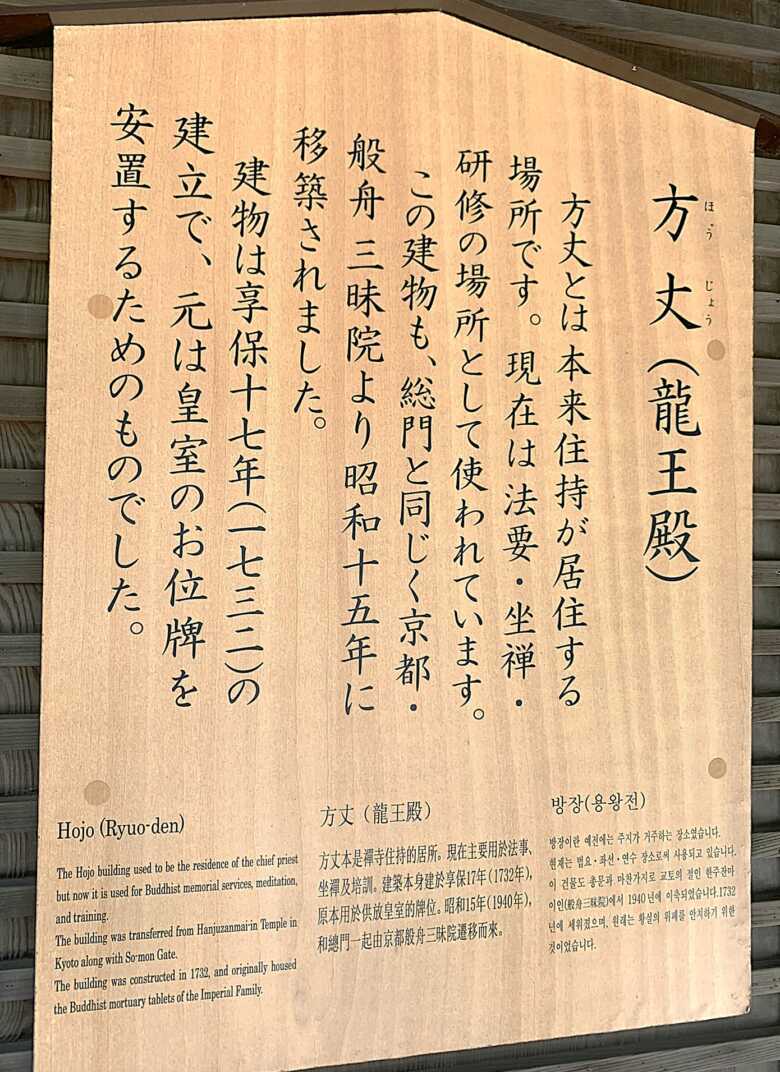 方丈（龍王殿）
ほうじょう
方丈とは本来住持が居住する
場所です。現在は法要・坐禅・
研修の場所として使われています。
この建物も、総門と同じく京都・
般舟三昧院より昭和十五年に
移築されました。
建物は享保十七年（一七三二）の
建立で、元は皇室のお位牌を
安置するためのものでした。
Hojo (Ryuo-den)
The Hojo building used to be the residence of the chief priest
but now it is used for Buddhist memorial services, meditation,
and training.
The building was transferred from Hanjuzanmai-in Temple in
Kyoto along with So-mon Gate.
The building was constructed in 1732, and originally housed
the Buddhist mortuary tablets of the Imperial Family.
方丈（龍王殿）
方丈本是禪寺住持的居所。現在主要用於法事、
坐禪及培訓。建築本身建於享保17年（1732年），
原本用於供放皇室的牌位。昭和15年（1940年），
和總門一起由京都般舟三昧院遷移而來。
방장(용왕전)
방장이란 예전에는 주지가 거주하는 장소였습니다.
현재는 법요・좌선・연수 장소로써 사용되고 있습니다.
이 건물도 총문과 마찬가지로 교토의 절인 한주잔마
이인(般舟三昧院)에서 1940년에 이축되었습니다.1732
년에 세워졌으며, 원래는 황실의 위패를 안치하기 위한
것이었습니다.